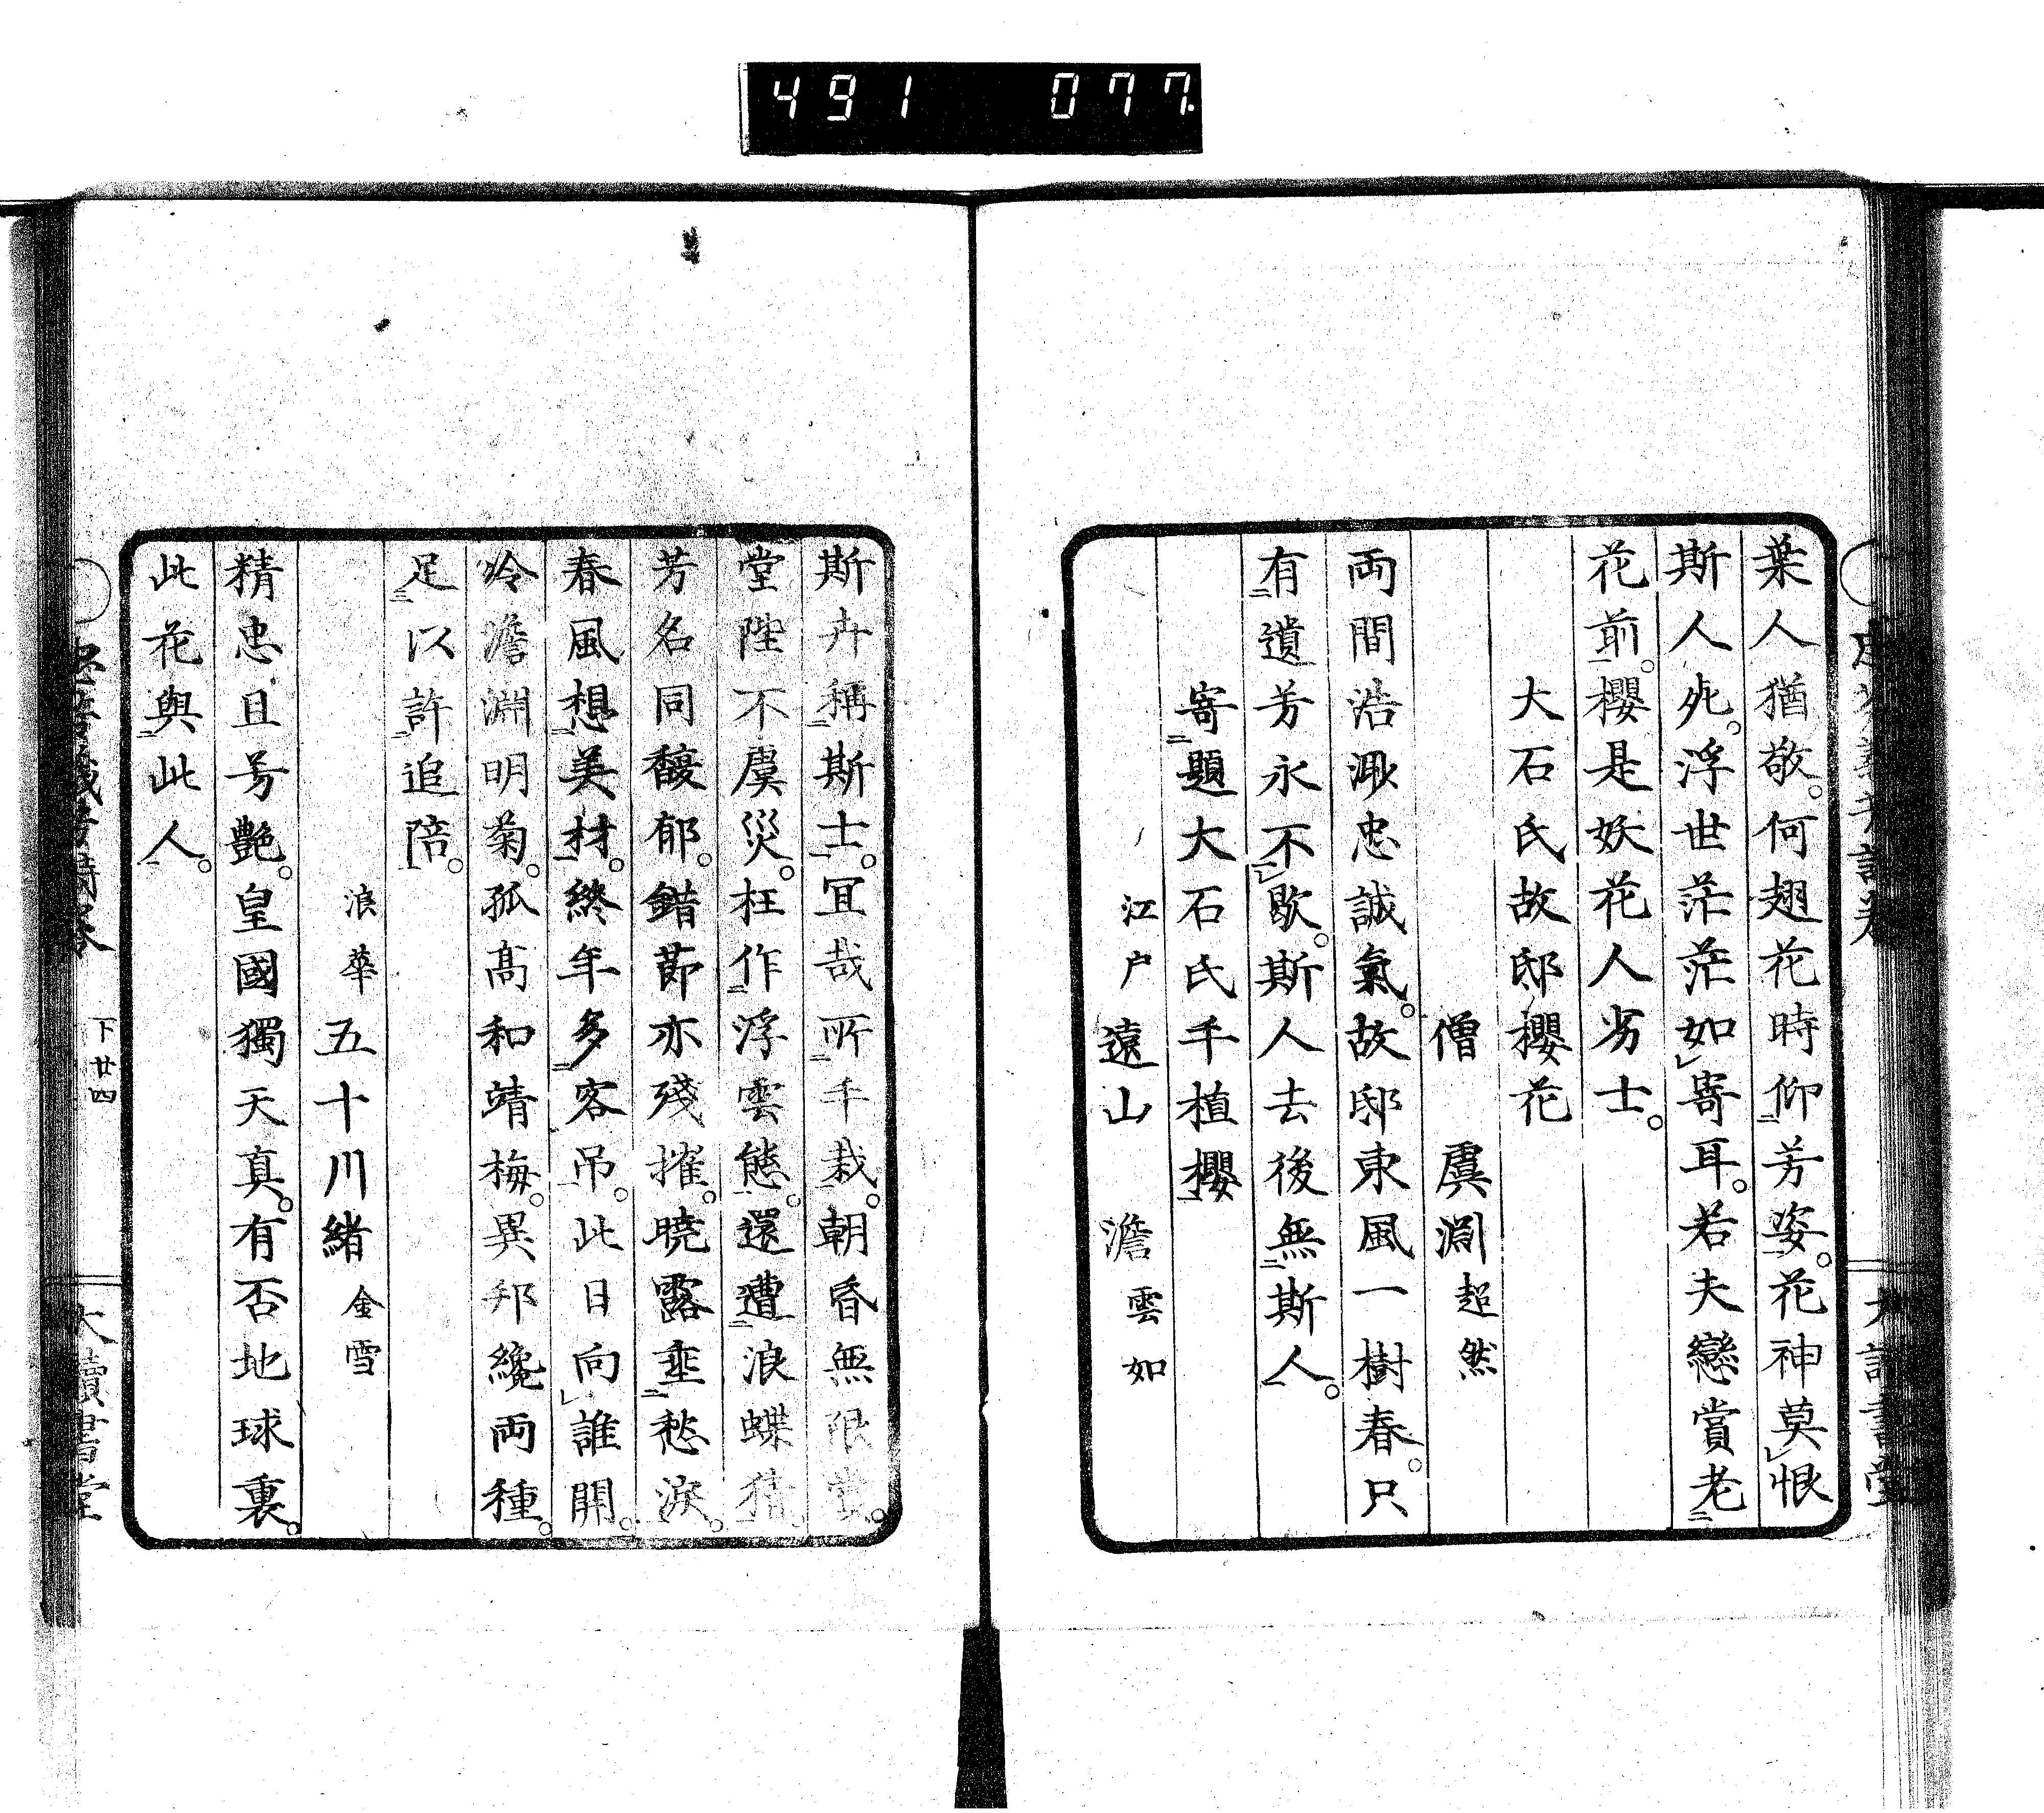 491 077
葉人猶敬。何翅花時仰芳姿。花神莫恨
斯人死。浮世茫茫如寄耳。若夫戀賞老
花前。櫻是妖花人劣士。
大石氏故邸櫻花
僧 虞淵 超然
両間浩溂忠誠氣。故邸東風一樹春。只
有遺芳永不歇。斯人去後無斯人。
寄題大石氏手植櫻
江戸 遠山 澹 雲如
斯卉稱斯士。冝哉所手栽。朝昏無限
堂陛不虞災。枉作浮雲態。還遭浪蝶猜
芳名同馥郁。錯莭亦殘摧。曉露垂愁淚。
春風想美材。終年多客吊。此日向誰開。
冷澹淵明菊。孤高和靖梅。異邦纔両種。
足以許追陪。
浪華 五十川緒 金雪
精忠且芳艶。皇國獨天真。有否地球裏。
此花與此人。
下廿四
大讀書堂